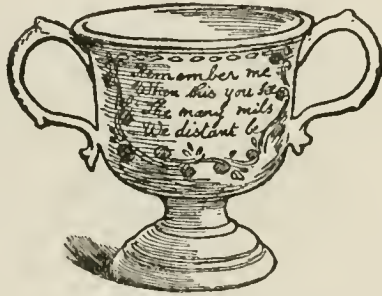 Remember me
When this you se
Tho many mils
We distant be